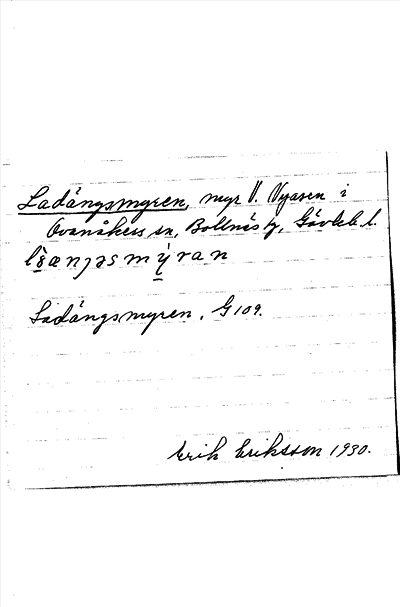 Ladängsmyren, myr V. Vyasen i
Ovanåkers sn, Bollnäs tg, Gävleb. l.
Ladängsmyren. G 109.
Erik Eriksson 1930.